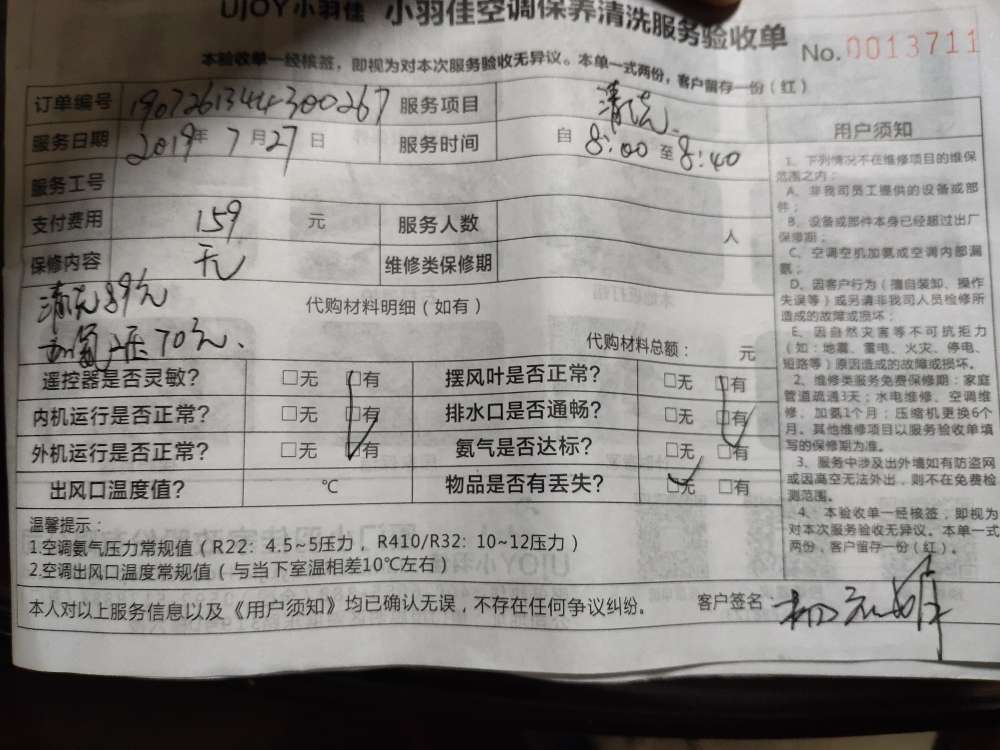 UJOY小羽佳 小羽佳空调保养清洗服务验收单
No.0013711
本验收单一经核签，即视为对本次服务验收无异议。本单一式两份，客户留存一份（红）
订单编号 190726134414300267 服务项目 清洗
服务日期 2019年7月27日 服务时间 自 8:00 至 8:40
服务工号
支付费用 159 元 服务人数 人
保修内容 无 维修类保修期
清洗89元
代购材料明细（如有）
加氨 压70元、
代购材料总额： 元
遥控器是否灵敏? □无 □有 摆风叶是否正常? □无 □有
内机运行是否正常? □无 □有 排水口是否通畅? □无 □有
外机运行是否正常? □无 □有 氨气是否达标? □无 □有
出风口温度值? ℃ 物品是否有丢失? □无 □有
温馨提示：
1.空调氨气压力常规值（R22：4.5~5压力，R410/R32：10~12压力）
2.空调出风口温度常规值（与当下室温相差10℃左右）
本人对以上服务信息以及《用户须知》均已确认无误，不存在任何争议纠纷。 客户签名
用户须知
1、下列情况不在维修项目的维保
范围之内：
A、非我司员工提供的设备或部
件；
B、设备或部件本身已经超过出厂
保修期；
C、空调空机加氨或空调内部漏
氨；
D、因客户行为（擅自装卸、操作
失误等）或另请非我司人员检修所
造成的故障或损坏；
E、因自然灾害等不可抗拒力
（如：地震、雷电、火灾、停电、
短路等）原因造成的故障或损坏。
2、维修类服务免费保修期：家庭
管道疏通3天；水电维修、空调维
修、加氨1个月；压缩机更换6个
月。其他维修项目以服务验收单填
写的保修期为准。
3、服务中涉及出外墙如有防盗网
或因高空无法外出，则不在免费检
测范围。
4、本验收单一经核签，即视为
对本次服务验收无异议。本单一式
两份，客户留存一份（红）。